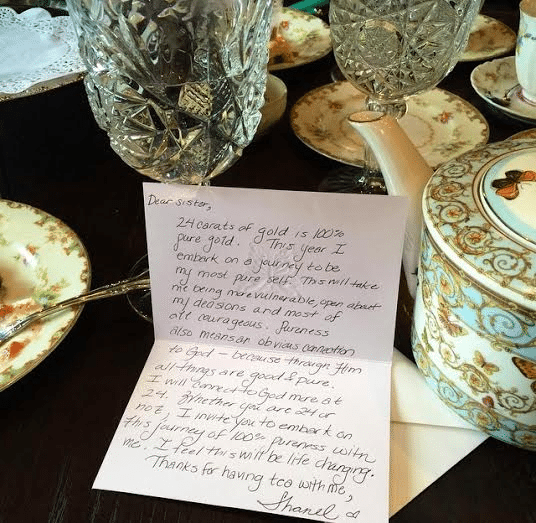 Dear sister,
24 carats of gold is 100%
pure gold. This year I
embark on a journey to be
my most pure self. This will take
me being more vulnerable, open about
my decisions and most of
all courageous. Pureness
also means an obvious connection
to God – because through Him
all things are good & pure.
I will connect to God more at
24. Whether you are 24 or
not, I invite you to embark on
this journey of 100% pureness with
me. I feel this will be life changing.
Thanks for having tea with me,
Shanel